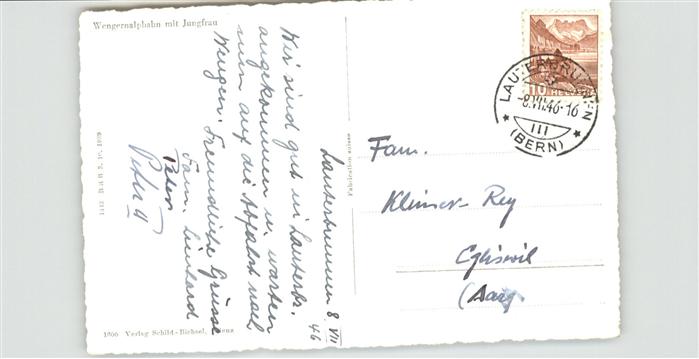 Wengernalpbahn mit Jungfrau
Lauterbrunnen 8. VII
46
Wir sind gut in Lauterb.
angekommen u. warten
nun auf die Abfahrt nach
Wengen. Freundliche Grüsse
Fam. Lienhard
Peter
Peter
1412 B.R.B. 3. 10. 1939
1900 Verlag Schild-Bichsel, Brienz
Fabrication suisse
10 HELVETIA
LAUTERBRUNNEN
-8.VII.46-16
III
(BERN)
Fam.
Klimer-Rey
Egliswil
(Aarg.